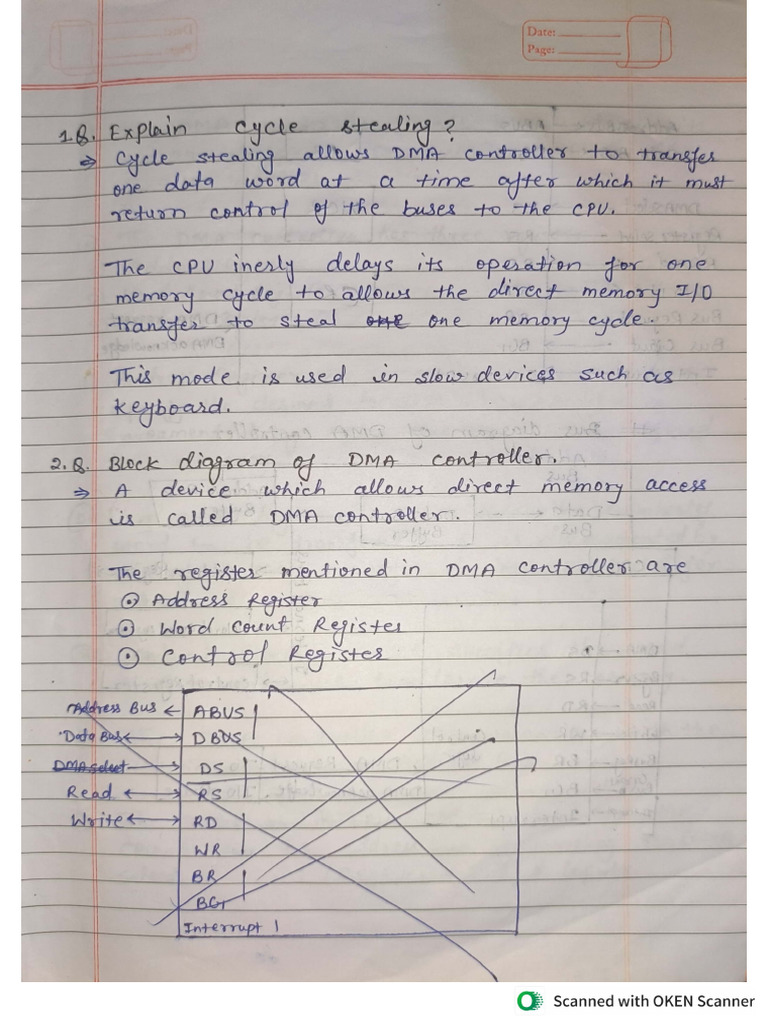 Date:
Page:
1Q. Explain cycle stealing?
⇒ Cycle stealing allows DMA controller to transfer
one data word at a time after which it must
return control of the buses to the CPU.
The CPU inerly delays its operation for one
memory cycle to allows the direct memory I/O
transfer to steal one one memory cycle.
This mode is used in slow devices such as
keyboard.
2.Q. Block diagram of DMA controller.
⇒ A device which allows direct memory access
is called DMA controller.
The register mentioned in DMA controller are
⊙ Address Register
⊙ Word Count Register
⊙ Control Register
Address Bus ← ABUS
Data Bus ↔ DBUS
DMA select → DS
Read ↔ RS
Write ↔ RD
WR
BR
BG
Interrupt
Scanned with OKEN Scanner